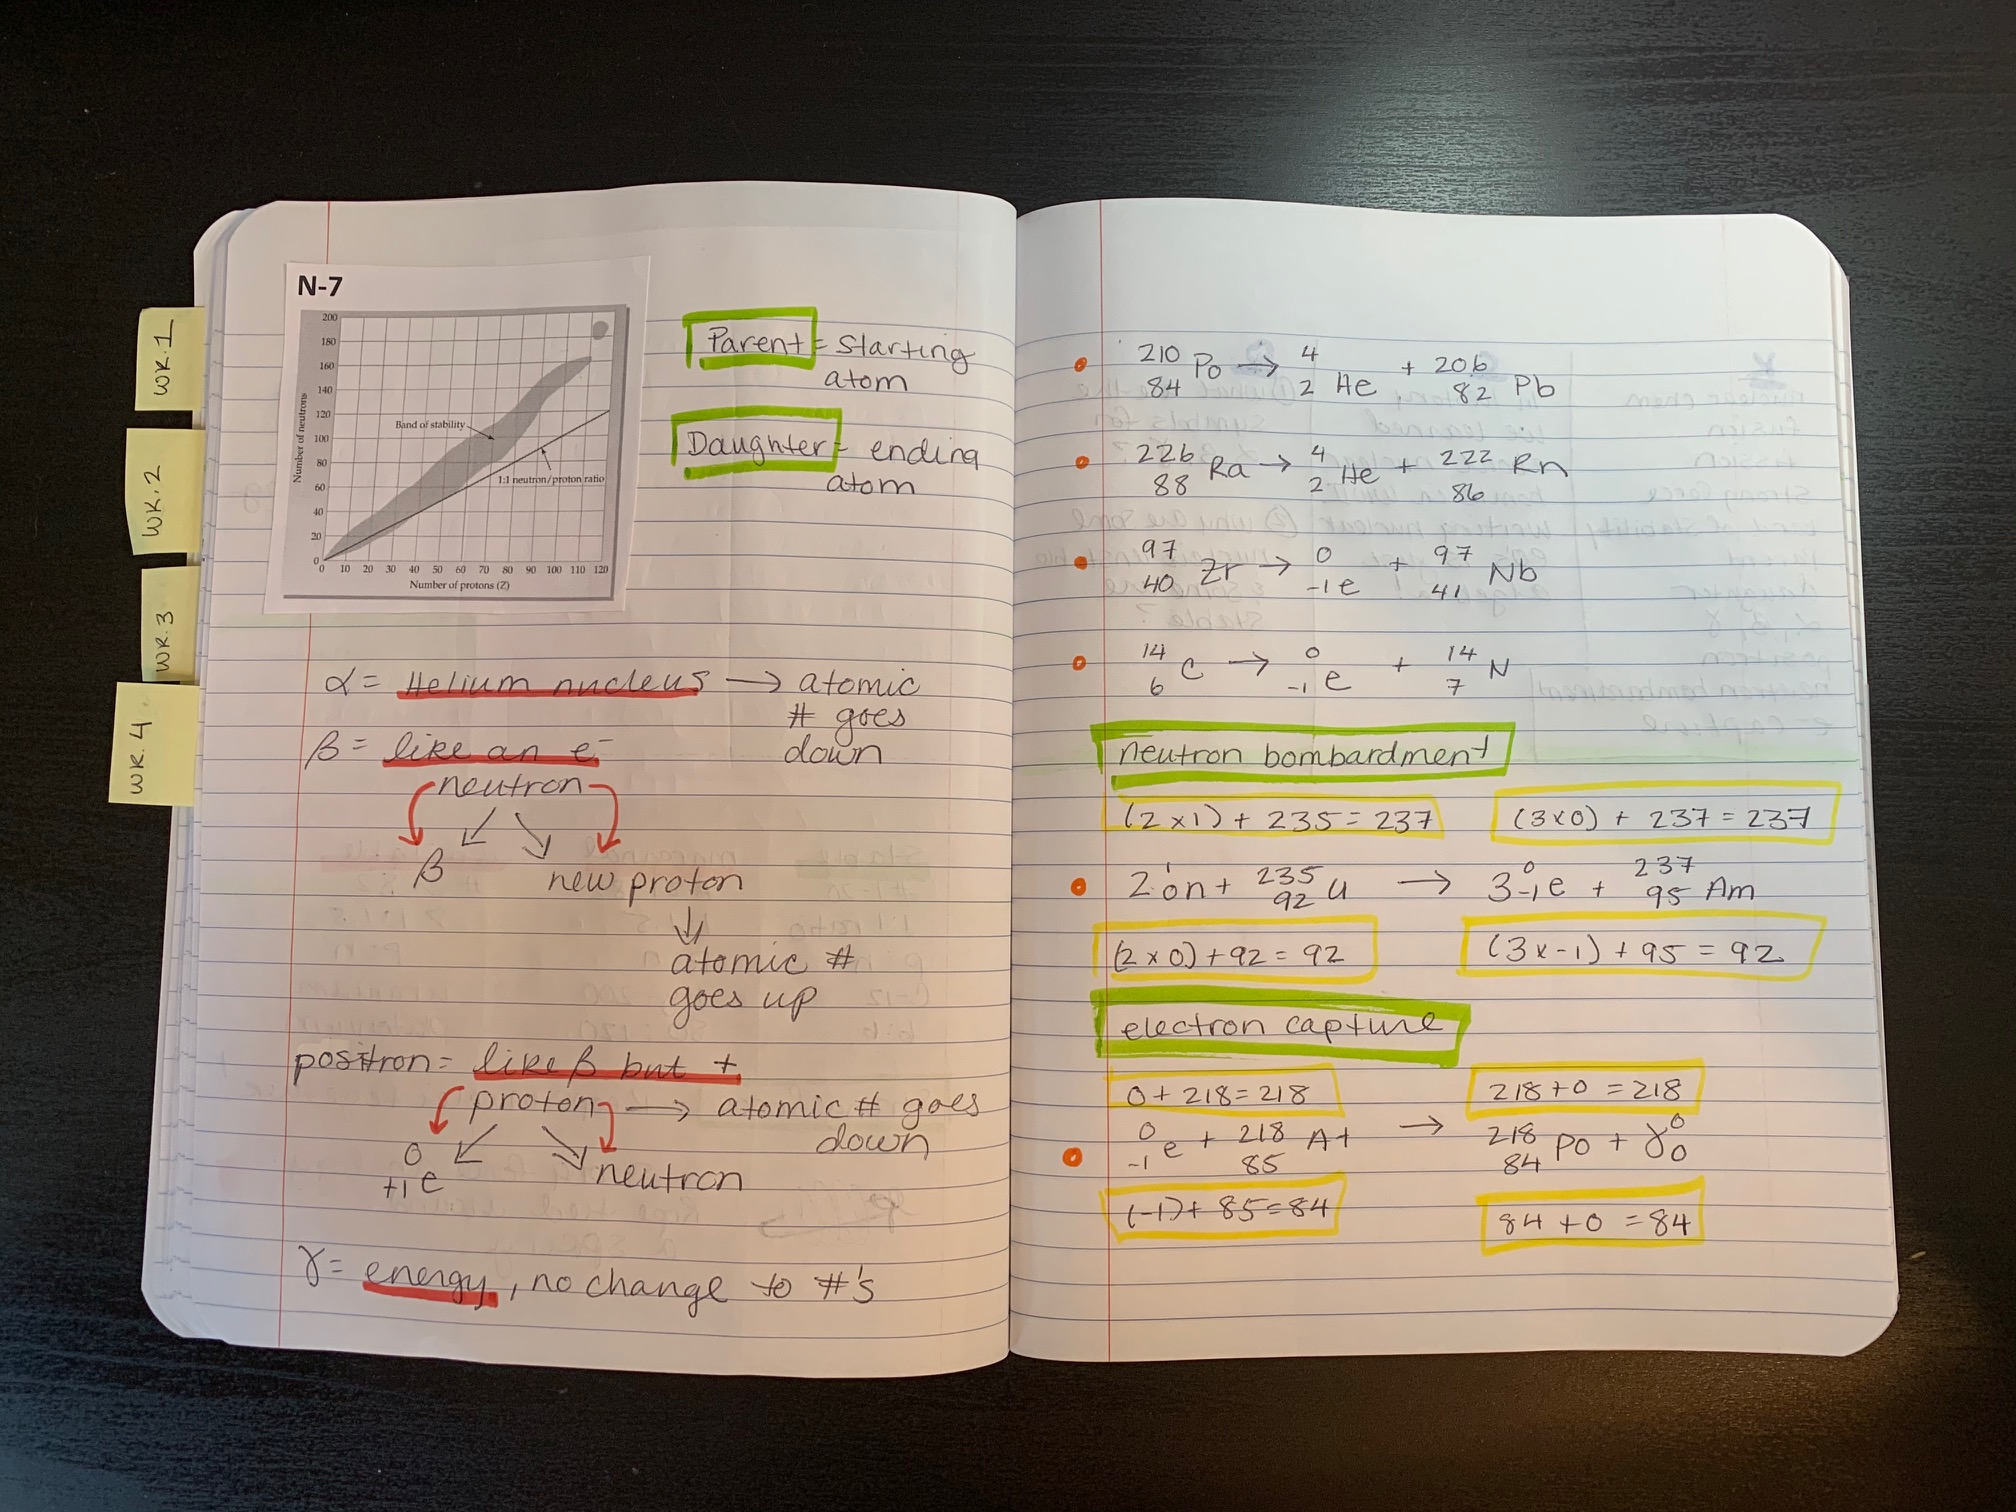 WK.1
WK.2
WK.3
WK.4
N-7
Number of neutrons
200
180
160
140
120
100
80
60
40
20
0
Band of stability
1:1 neutron/proton ratio
0 10 20 30 40 50 60 70 80 90 100 110 120
Number of protons (Z)
Parent = starting
atom
Daughter = ending
atom
α = Helium nucleus → atomic
# goes
down
β = like an e⁻
neutron
β new proton
atomic #
goes up
positron = like β but +
proton → atomic # goes
down
⁰₊₁e neutron
γ = energy, no change to #'s
²¹⁰₈₄Po → ⁴₂He + ²⁰⁶₈₂Pb
²²⁶₈₈Ra → ⁴₂He + ²²²₈₆Rn
⁹⁷₄₀Zr → ⁰₋₁e + ⁹⁷₄₁Nb
¹⁴₆C → ⁰₋₁e + ¹⁴₇N
neutron bombardment
(2x1) + 235 = 237 (3x0) + 237 = 237
2¹₀n + ²³⁵₉₂U → 3⁰₋₁e + ²³⁷₉₅Am
(2x0) + 92 = 92 (3x-1) + 95 = 92
electron capture
0 + 218 = 218 218 + 0 = 218
⁰₋₁e + ²¹⁸₈₅At → ²¹⁸₈₄Po + γ⁰₀
(-1) + 85 = 84 84 + 0 = 84